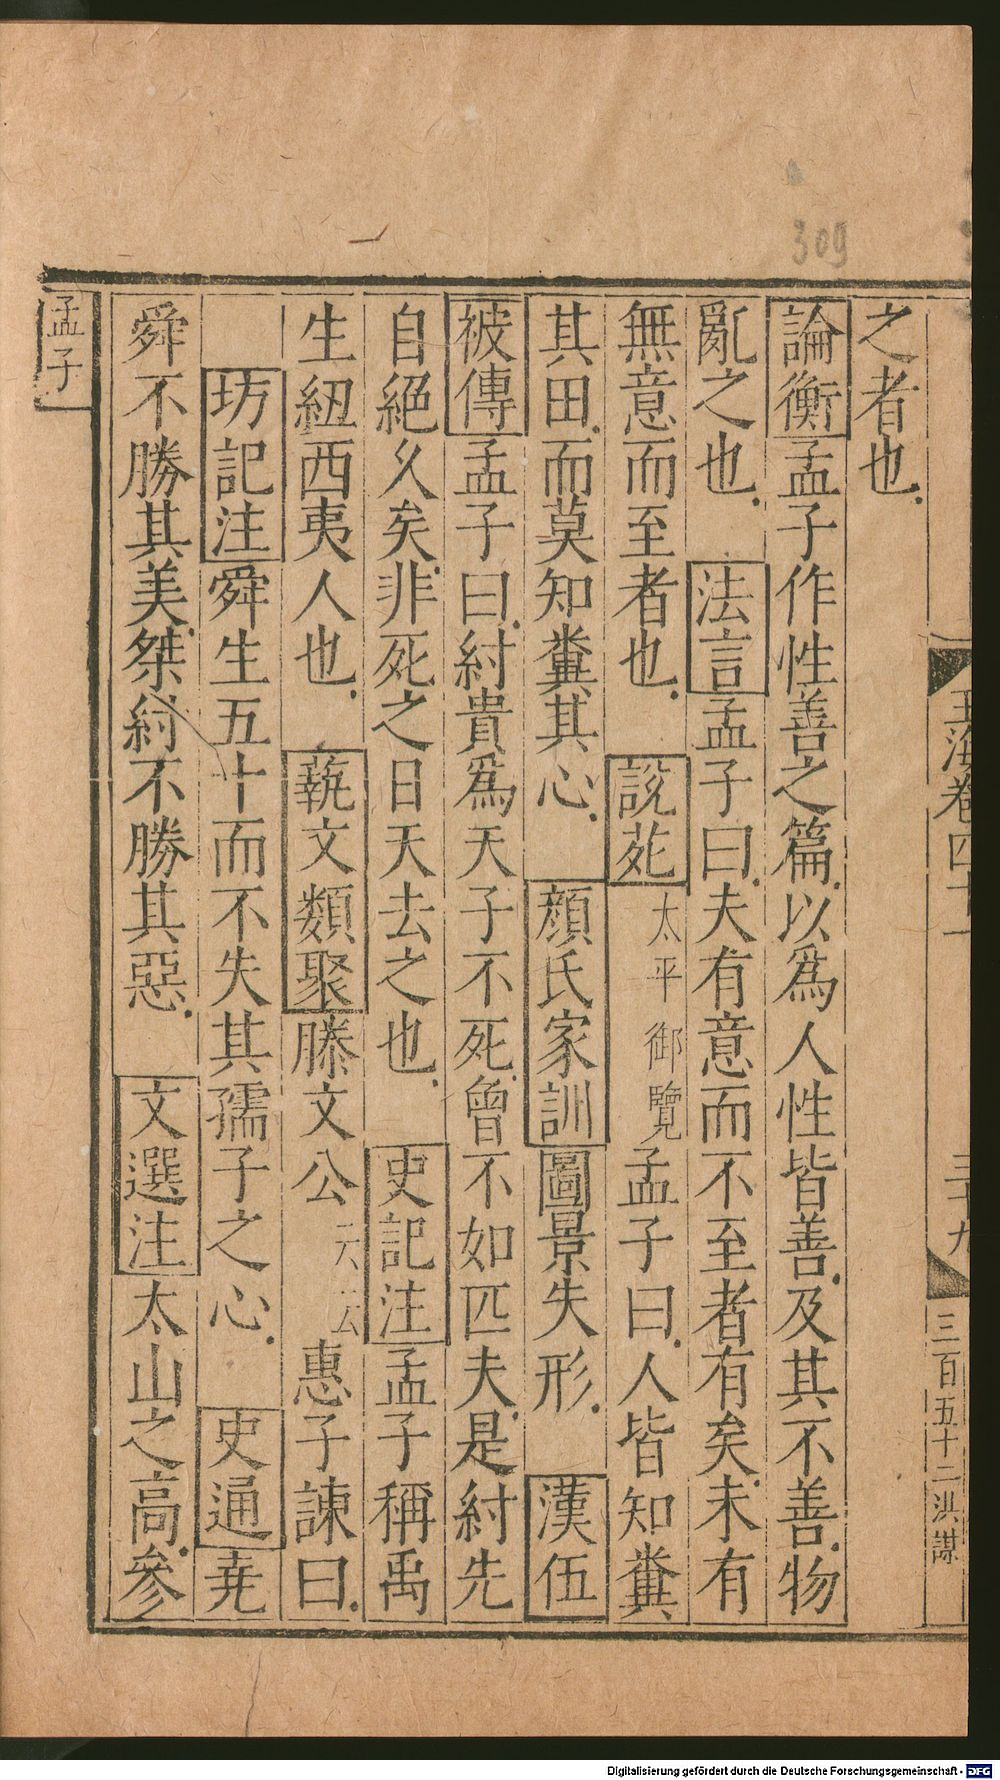 309
玉海卷四十一 三十九 三百五十二 洪謀
之者也
論衡孟子作性善之篇以為人性皆善及其不善物
亂之也 法言孟子曰夫有意而不至者有矣未有
無意而至者也 說苑太平御覽孟子曰人皆知糞
其田而莫知糞其心 顏氏家訓圖景失形 漢伍
被傳孟子曰紂貴爲天子不死曾不如匹夫是紂先
自絕久矣非死之日天去之也 史記注孟子稱禹
生紐西夷人也 藝文類聚滕文公云云惠子諫曰
坊記注舜生五十而不失其孺子之心 史通堯
舜不勝其美桀紂不勝其惡 文選注太山之高參
孟子
Digitalisierung gefördert durch die Deutsche Forschungsgemeinschaft - DFG